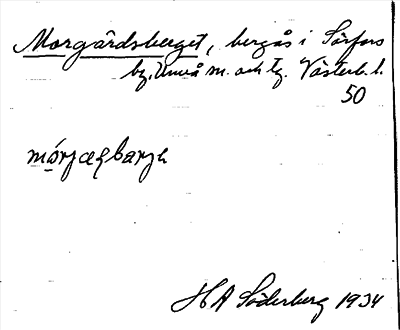 Morgårdsberget, bergås i Sörfors
by, Umeå sn. och tg. Västerb. l.
50
HA Söderberg 1934